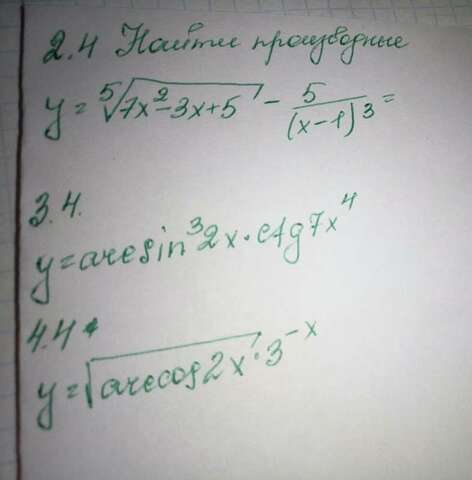 2.4 Найти производные
y = ⁵√(7x²-3x+5) - 5/(x-1)³ =
3.4.
y = arcsin³2x · ctg7x⁴
4.4
y = √(arccos2x) · 3⁻ˣ